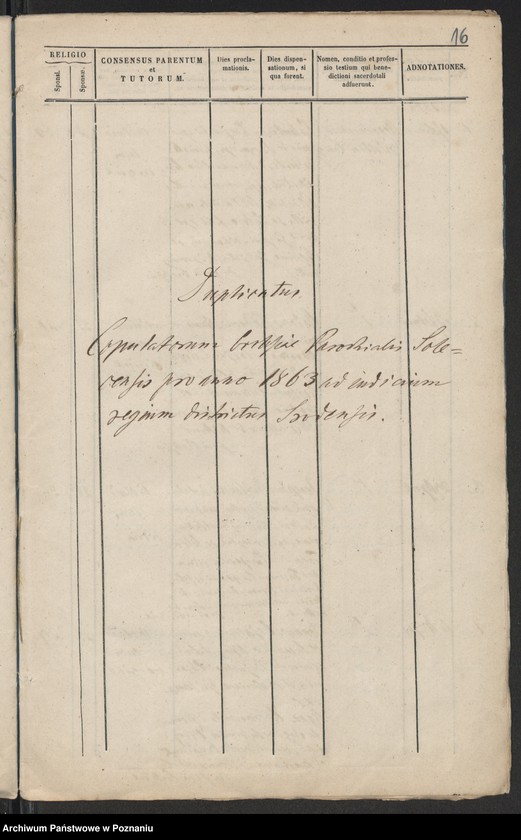 16
RELIGIO
Sponsi.
Sponsae.
CONSENSUS PARENTUM
et
TUTORUM.
Dies procla-
mationis.
Dies dispen-
sationum, si
qua forent.
Nomen, conditio et profes-
sio testium qui bene-
dictioni sacerdotali
adfuerunt.
ADNOTATIONES.
Duplicatus
Copulatorum Parochialis Sole=
censis pro anno 1863 ad iudicium
regium districtus Srodensis.
Archiwum Państwowe w Poznaniu